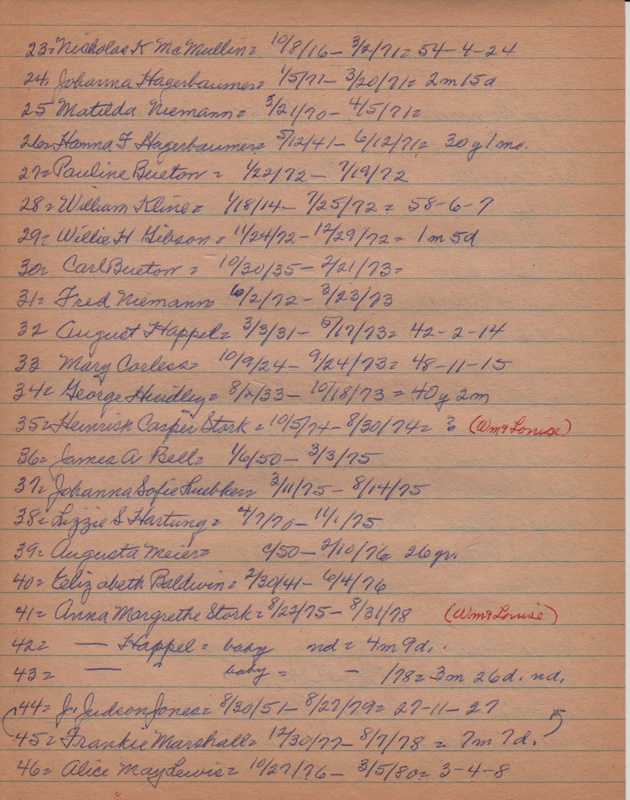 23= Nicholas K McMullin= 10/8/16 – 3/2/71= 54-4-24
24= Johanna Hagerbaumer= 1/5/71 – 3/20/71= 2m15d
25 Matilda Niemann= 3/21/70 – 4/5/71=
26= Hanna F Hagerbaumer= 5/12/41 – 6/12/71= 30y1mo.
27= Pauline Bueton = 1/22/72 – 7/19/72
28= William Kline= 1/18/14 – 7/25/72= 58-6-7
29= Willie H Gibson= 11/24/72 – 12/29/72= 1m5d
30= Carl Bueton = 10/30/35 – 2/21/73=
31= Fred Niemann= 6/2/72 – 3/23/73
32 August Happel= 3/3/31 – 5/17/73= 42-2-14
33 Mary Corless= 10/9/24 – 9/24/73= 48-11-15
34= George Hindley= 8/ /33 – 10/18/73= 40y2m
35= Heinrich Casper Stork= 10/5/74 – 8/30/74= 3 (Wm & Louise)
36= James A Bell= 1/6/50 – 3/3/75
37= Johanna Sofie Luebken 3/11/75 – 8/14/75
38= Lizzie S Hartung= 4/7/70 – 11/1/75
39= Augusta Meier= c/50 – 2/10/76 26yr.
40= Elizabeth Baldwin= 2/30/41 – 6/4/76
41= Anna Margrethe Stork= 8/22/75 – 8/31/78 (Wm & Louise)
42= — Happel= baby nd= 4m9d.
43= — " baby= – /78= 3m26d. nd.
44= J. Judson Jones= 8/30/51 – 8/27/79= 27-11-27
45= Frankie Marshall= 12/30/77 – 8/7/78= 7m7d.
46= Alice May Lewis= 10/27/76 – 3/5/80= 3-4-8